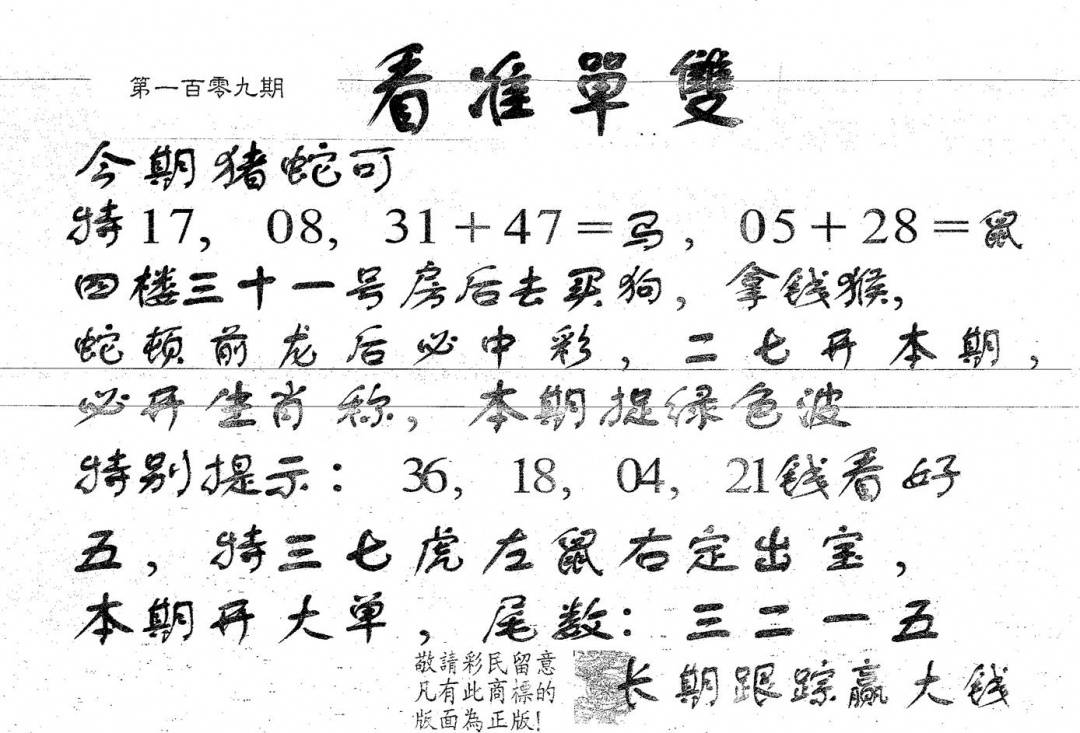 第一百零九期
看准單雙
今期猪蛇可
特17, 08, 31+47=马, 05+28=鼠
四楼三十一号房后去买狗,拿钱猴,
蛇顿前龙后必中彩,二七开本期,
必开生肖称,本期捉绿色波
特别提示: 36, 18, 04, 21钱看好
五,特三七虎左鼠右定出宝,
本期开大单,尾数:三二一五
敬請彩民留意
凡有此商標的
版面為正版!
长期跟踪赢大钱